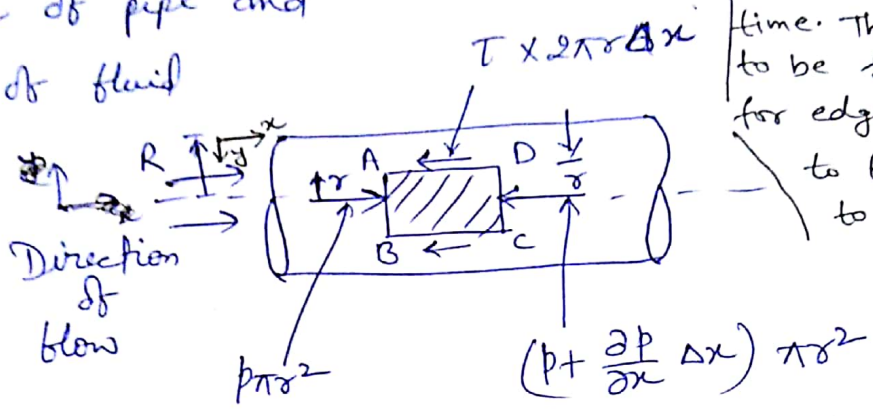 of pipe and
of fluid
time. Th
to be
for edg
to
to
τ × 2πrΔx
R
x
y
A
D
r
r
B
C
Direction
of
flow
pπr²
(p + ∂p/∂x Δx) πr²